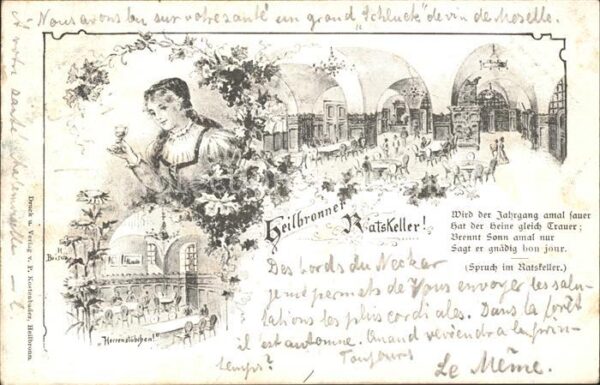 Nous avons bu sur votre santé un grand "Schluck" de vin de Moselle.
À votre santé
Heilbronner
Ratskeller!
Wird der Jahrgang amal sauer
Hat der Heine gleich Trauer;
Brennt Sonn amal nur
Sagt er gnädig bon jour.
(Spruch im Ratskeller.)
Druck u. Verlag v. P. Kostenbader, Heilbronn.
"Herrenstübchen!"
Des bords du Neckar
je me permets de Vous envoyer les salu-
tations les plus cordiales. Dans la forêt
il est automne. Quand reviendra le prin-
temps?
Toujours
Le Même.